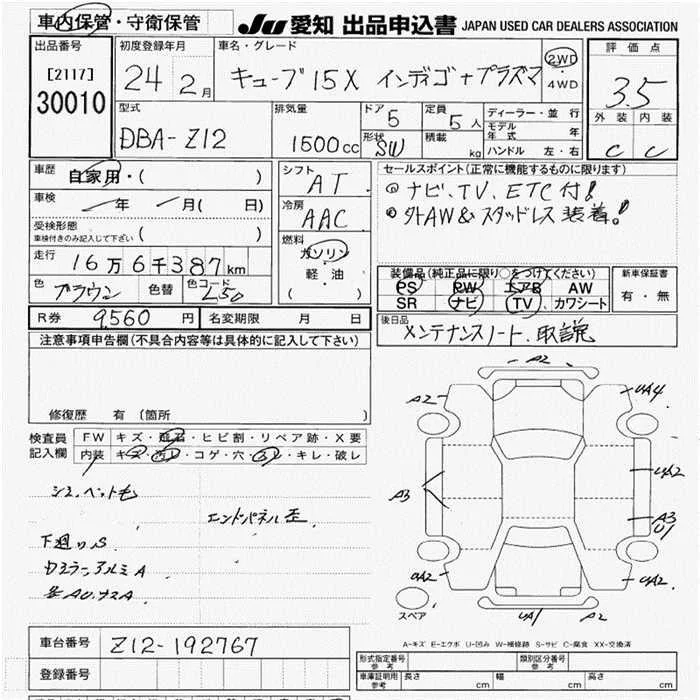 車内保管・守衛保管
JU 愛知 出品申込書 JAPAN USED CAR DEALERS ASSOCIATION
出品番号
[2117]
30010
初度登録年月
24 2月
車名・グレード
キューブ 15X インディゴ+プラズマ
2WD
・
4WD
評価点
3.5
外装 内装
C C
型式
DBA-Z12
排気量
1500cc
ドア
5
形状
SW
定員
5人
積載
kg
ディーラー・並行
モデル年式 年
ハンドル 左・右
車歴
自家用・( )
車検
年 月( 日)
受検形態
車検付きのみ記入して下さい
( )
走行
16万6千387km
色
ブラウン
色替
色コード
L50
シフト
AT
冷房
AAC
燃料
ガソリン
・
軽・油
( )
セールスポイント(正常に機能するものに限ります)
ナビ、TV、ETC付!
外AW&スタッドレス装着!
装備品(純正品に限り○をつけてください)
PS PW エアB AW
SR ナビ TV カワシート
新車保証書
有・無
R券 9,560円
名変期限 月 日
後日品
メンテナンスノート、取説
注意事項申告欄(不具合内容等は具体的に記入して下さい)
修復歴 有 (箇所 )
検査員
記入欄
FW キズ・飛石・ヒビ割・リペア跡・X要
内装 キズ・汚レ・コゲ・穴・スレ・キレ・破レ
エンドパネル歪
下廻りS
A2
A2
UA4
A3
UA2
A3
U1
UA2
UA2
UA1
A2
スペア
A-キズ E-エクボ U-凹み W-補修跡 S-サビ C-腐食 XX-交換済
車台番号
Z12-192767
登録番号
形式指定番号
参考
類別区分番号
参考
車庫証明用
参考
長さ cm
幅 cm
高さ cm